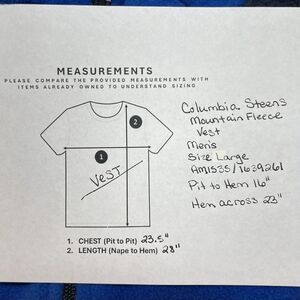 MEASUREMENTS
PLEASE COMPARE THE PROVIDED MEASUREMENTS WITH
ITEMS ALREADY OWNED TO UNDERSTAND SIZING
2
1
VEST
1. CHEST (Pit to Pit) 23.5"
2. LENGTH (Nape to Hem) 28"
Columbia Steens
Mountain Fleece
Vest
Mens
Size Large
AM1535/1639261
Pit to Hem 16"
Hem across 23"